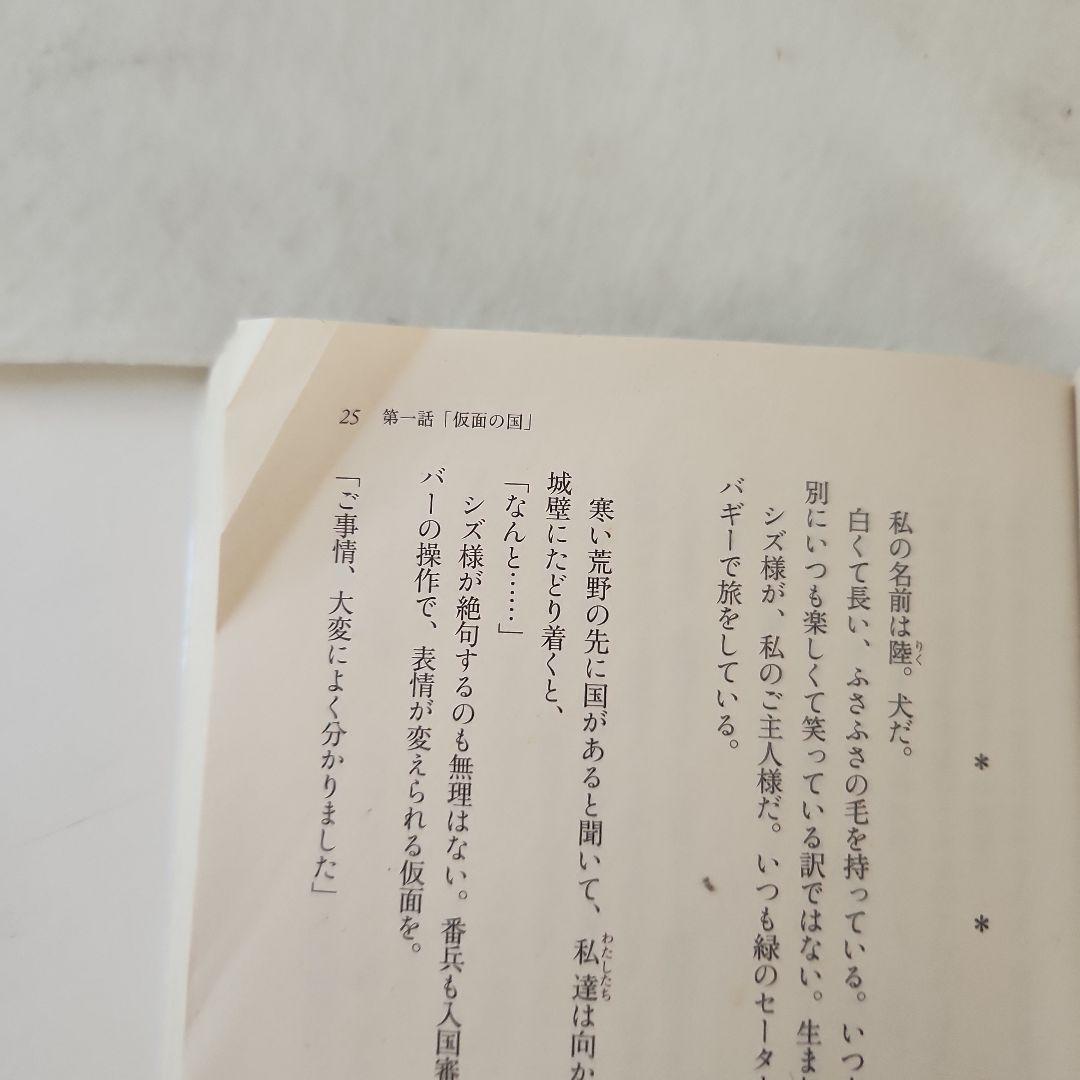 25 第一話「仮面の国」
＊ ＊
私の名前は陸。犬だ。
りく
白くて長い、ふさふさの毛を持っている。いつ
別にいつも楽しくて笑っている訳ではない。生ま
シズ様が、私のご主人様だ。いつも緑のセータ
バギーで旅をしている。
寒い荒野の先に国があると聞いて、私達は向か
わたしたち
城壁にたどり着くと、
「なんと……」
シズ様が絶句するのも無理はない。番兵も入国審
バーの操作で、表情が変えられる仮面を。
「ご事情、大変によく分かりました」